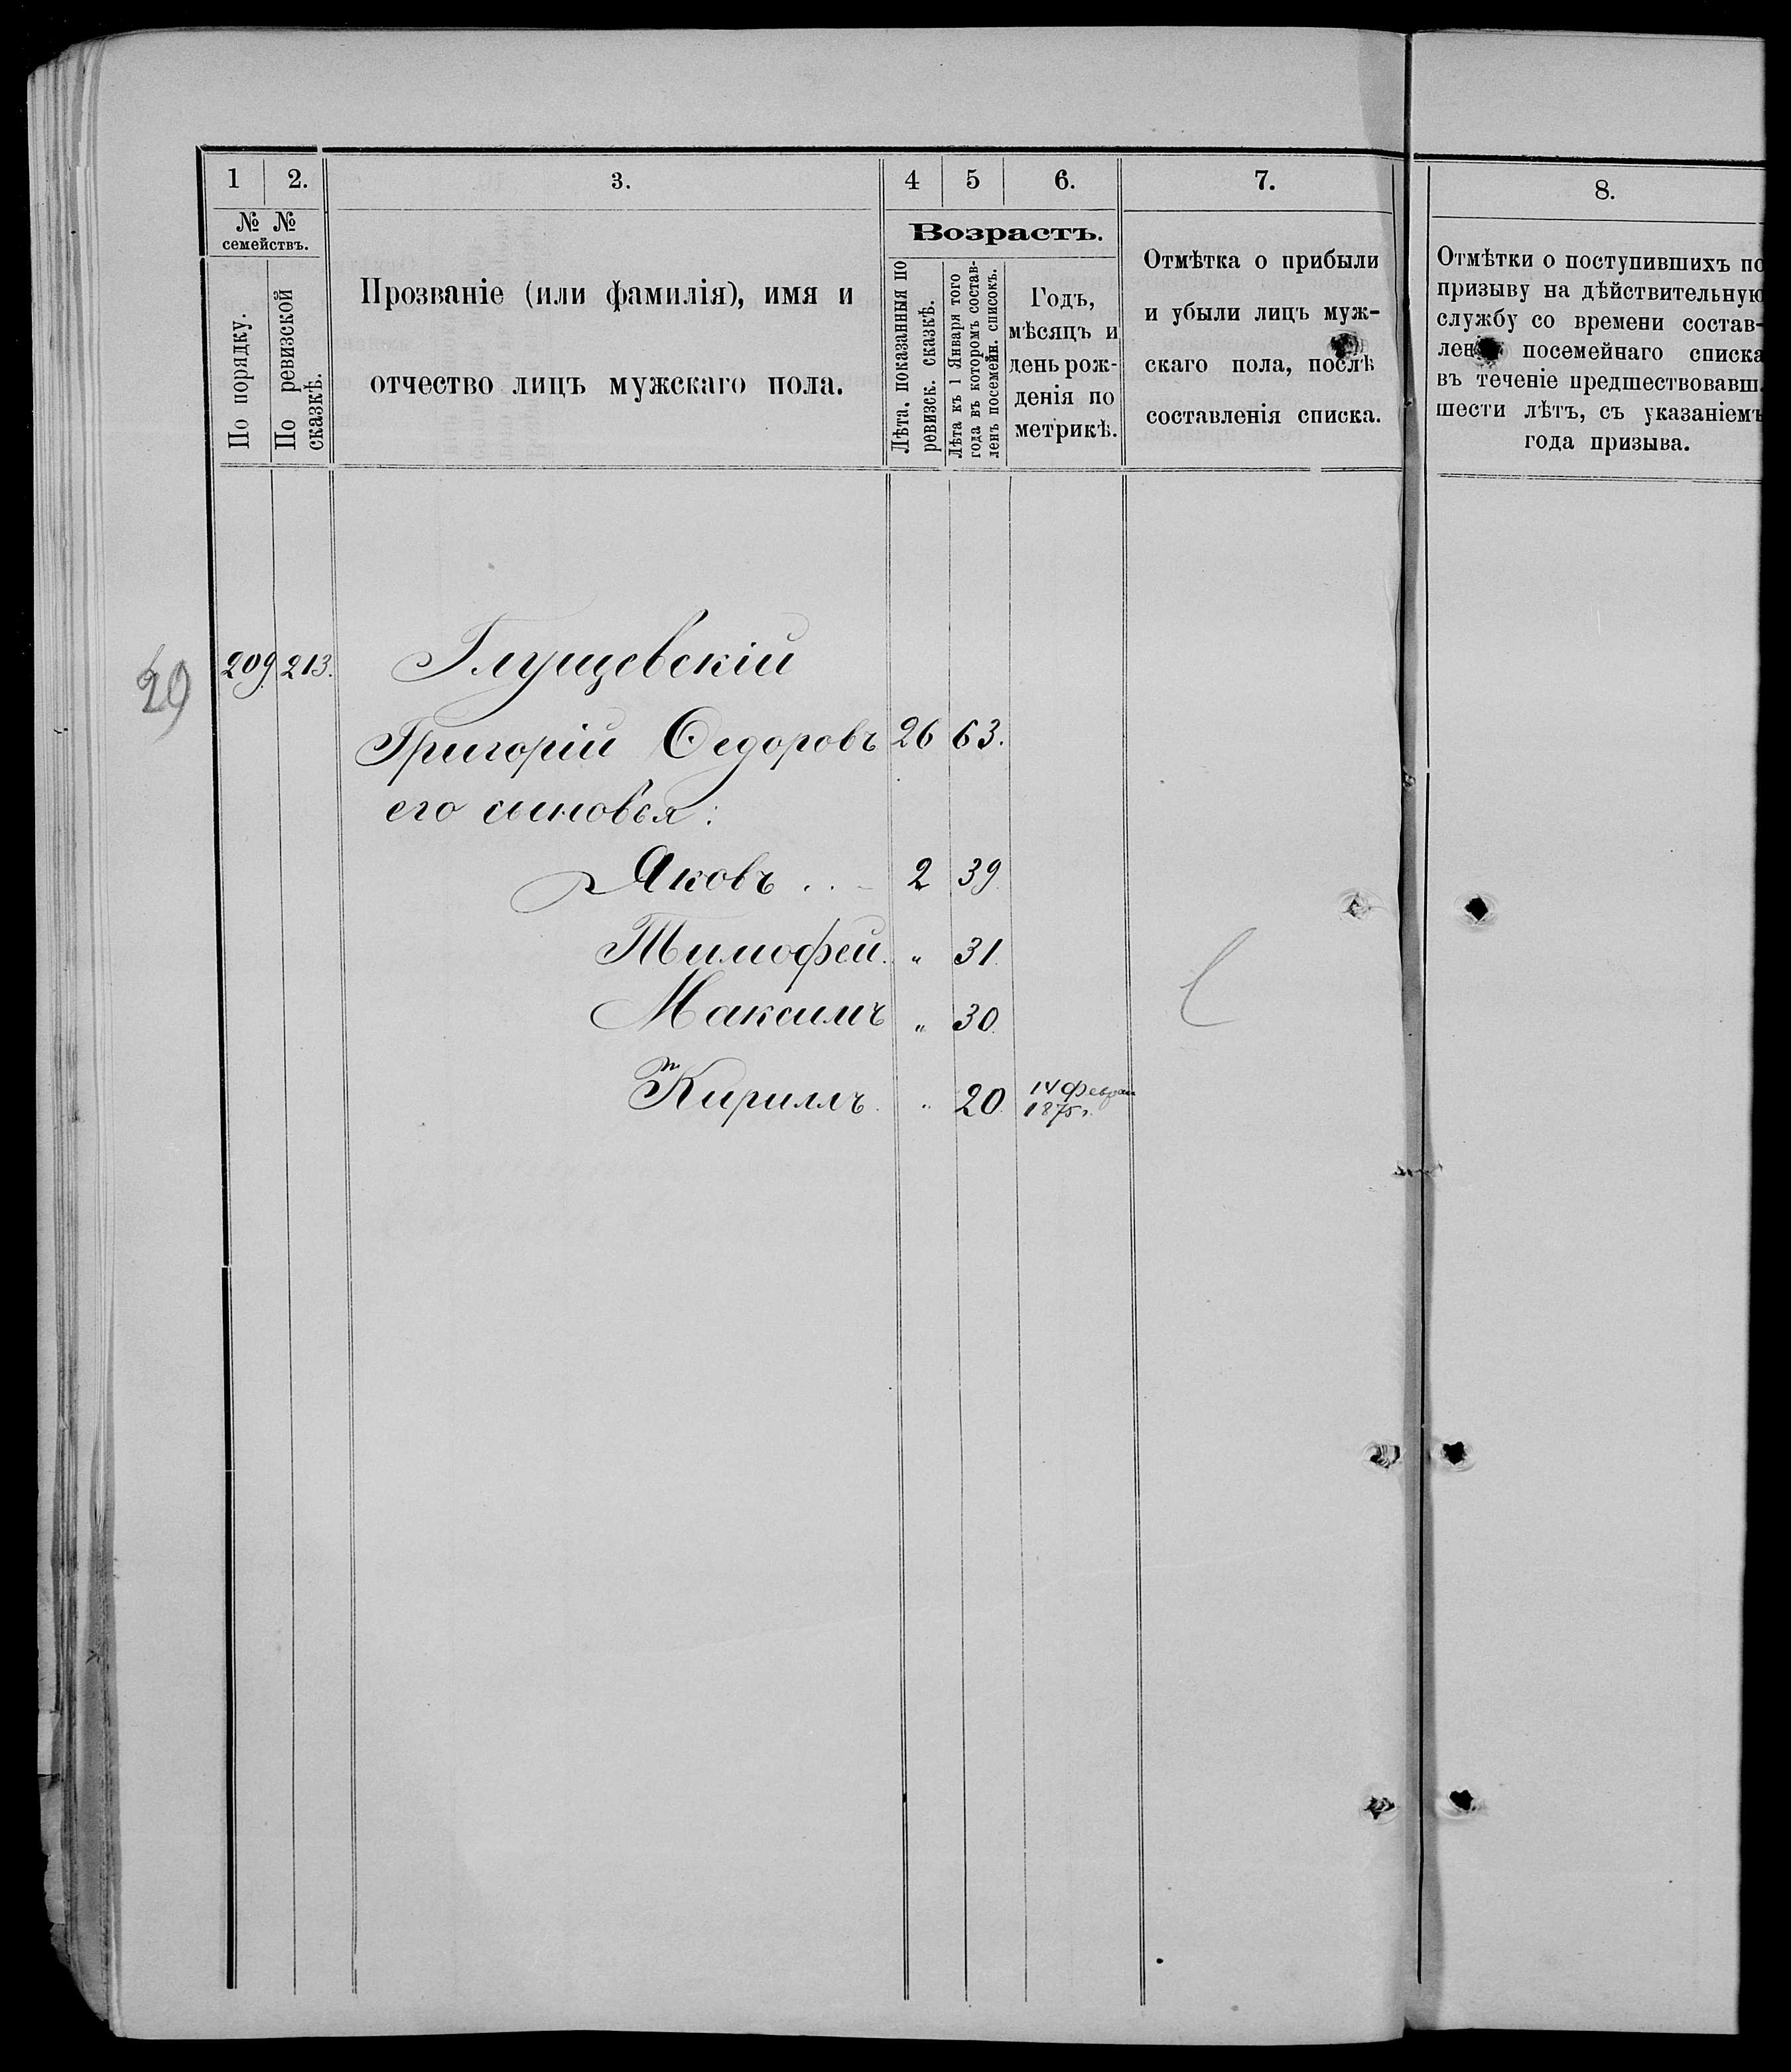 1 2. 3. 4 5 6. 7. 8.
№ №
семействъ.
По порядку.
По ревизской
сказкѣ.
Прозваніе (или фамилія), имя и
отчество лицъ мужскаго пола.
Возрастъ.
Лѣта, показанныя по
ревизск. сказкѣ.
Лѣта къ 1 Января того
года въ которомъ состав-
ленъ посемейн. списокъ.
Годъ,
мѣсяцъ и
день рож-
денія по
метрикѣ.
Отмѣтка о прибыли
и убыли лицъ муж-
скаго пола, послѣ
составленія списка.
Отмѣтки о поступившихъ по
призыву на дѣйствительную
службу со времени состав-
лен посемейнаго списка
въ теченіе предшествовавш.
шести лѣтъ, съ указаніемъ
года призыва.
209. 213. Глущевскій
Григорій Ѳедоровъ 26 63.
его сыновья:
Яковъ . . - 2 39.
Тимофей. " 31.
Максимъ " 30.
Кириллъ. " 20. 14 Феврал
1875 г.